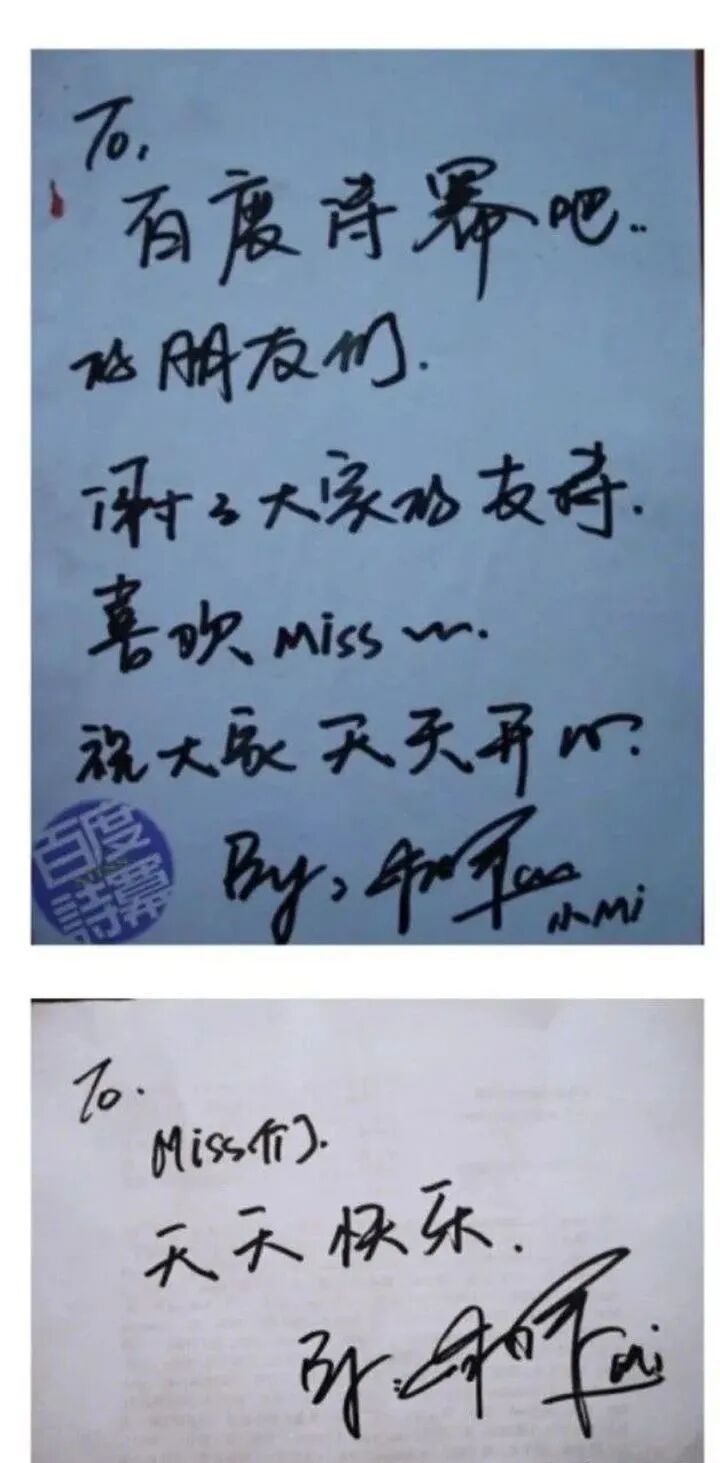 To,
百度诗幂吧..
的朋友们.
谢谢大家的支持.
喜欢 Miss ~~.
祝大家天天开心.
By,
小Mi
百度
MISS
诗幂
To.
Miss们.
天天快乐.
By:
Mi